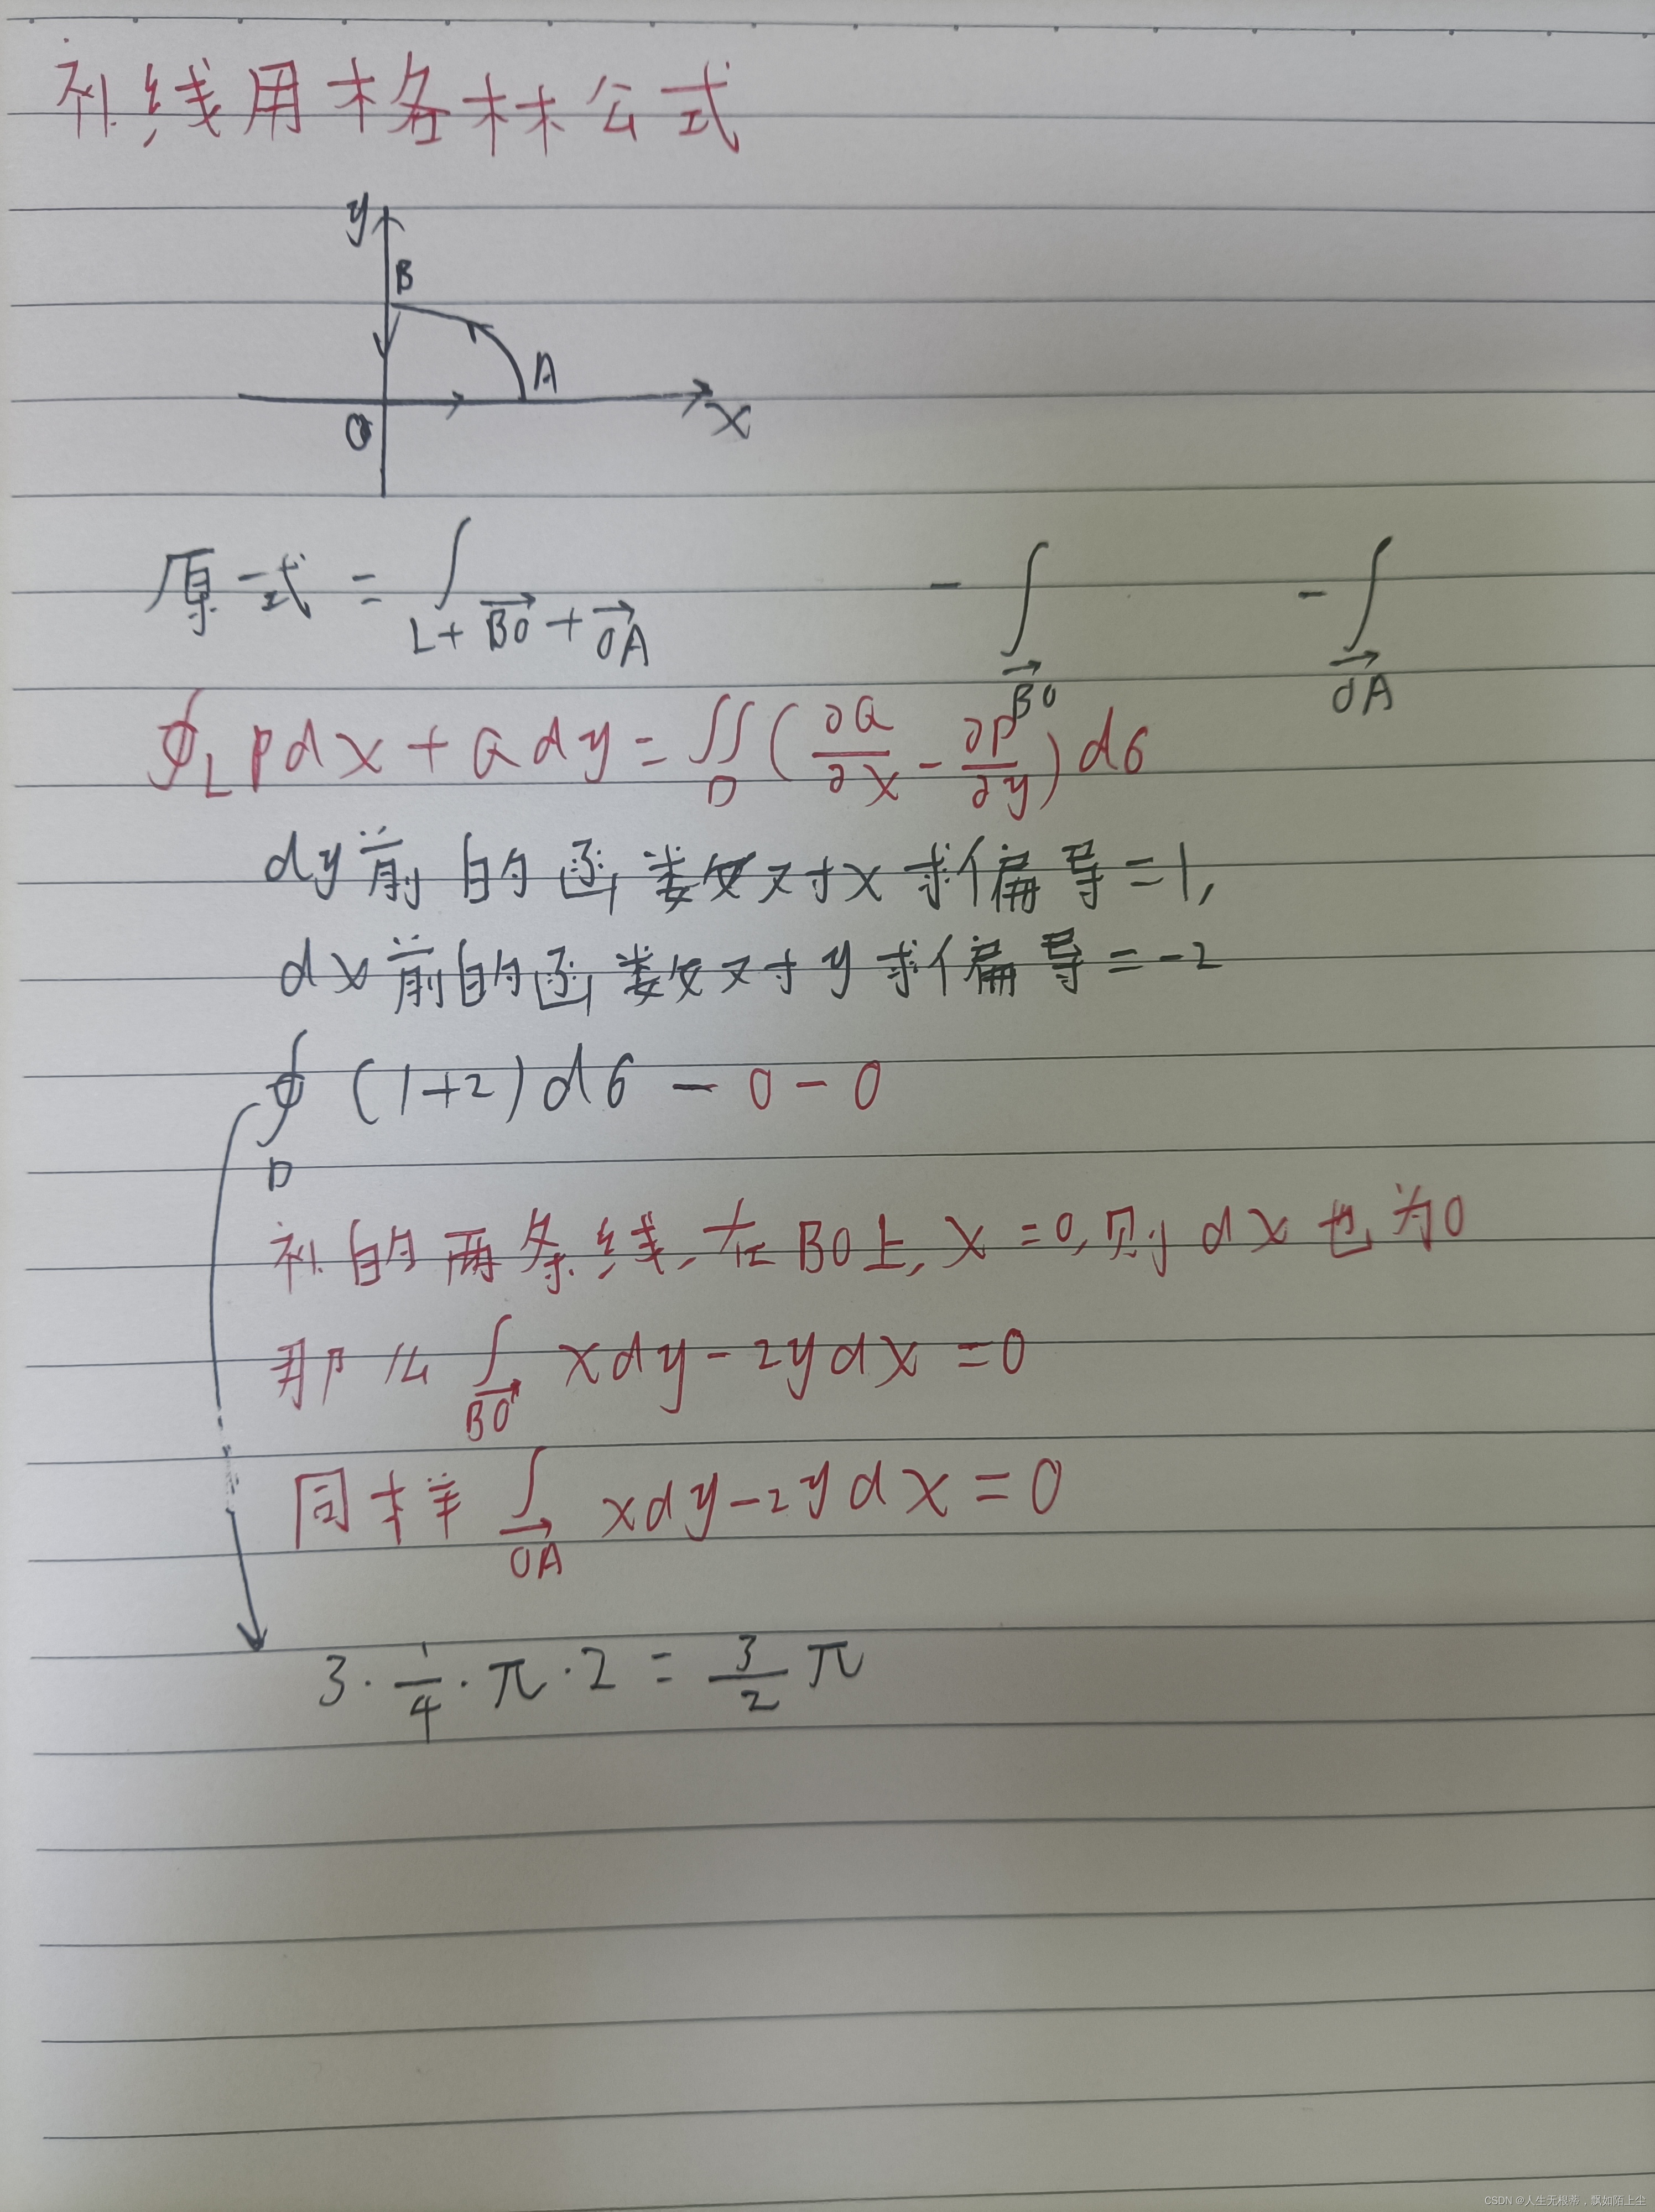 补线用格林公式
y
B
A
O
x
原式 = ∫_{L+\overrightarrow{BO}+\overrightarrow{OA}} - ∫_{\overrightarrow{BO}} - ∫_{\overrightarrow{OA}}
∮_L Pdx + Qdy = ∬_D (∂Q/∂x - ∂P/∂y) dσ
dy前的函数对x求偏导=1,
dx前的函数对y求偏导=-2
∮_D (1+2)dσ - 0 - 0
补的两条线,在BO上,x=0,则dx也为0
那么 ∫_{\overrightarrow{BO}} xdy-2ydx=0
同样 ∫_{\overrightarrow{OA}} xdy-2ydx=0
3·1/4·π·2=3/2 π
CSDN @人生无根蒂,飘如陌上尘